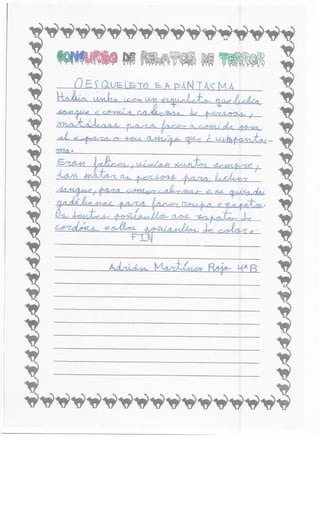 CONCURSO DE RELATOS DE TERROR
O ESQUELETO E A PANTASMA
Había unha vez un esqueleto que bebía
sangue e comía cabezas de persoas,
mataba as para facer a comida para
el e para o seu amigo que é
Eran felices, vivían xuntos sempre,
ían matar as persoas para beber
sangue, para comer cabezas e as
para facer roupa e zapatos.
Os dentes poñíanllo aos zapatos de
cordóns, e ollos poñíanllos de colar.
FIN
Adrián Martínez Rojo 4ºB